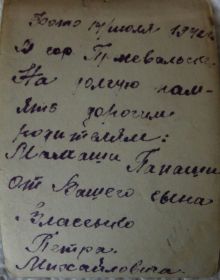 Фото 14/июля 194
В гор Пржевальск
На долгую пам-
ять дорогим
родителям:
Мамаши Папаши
от вашего сына
Власенко
Петра
Михайловича.